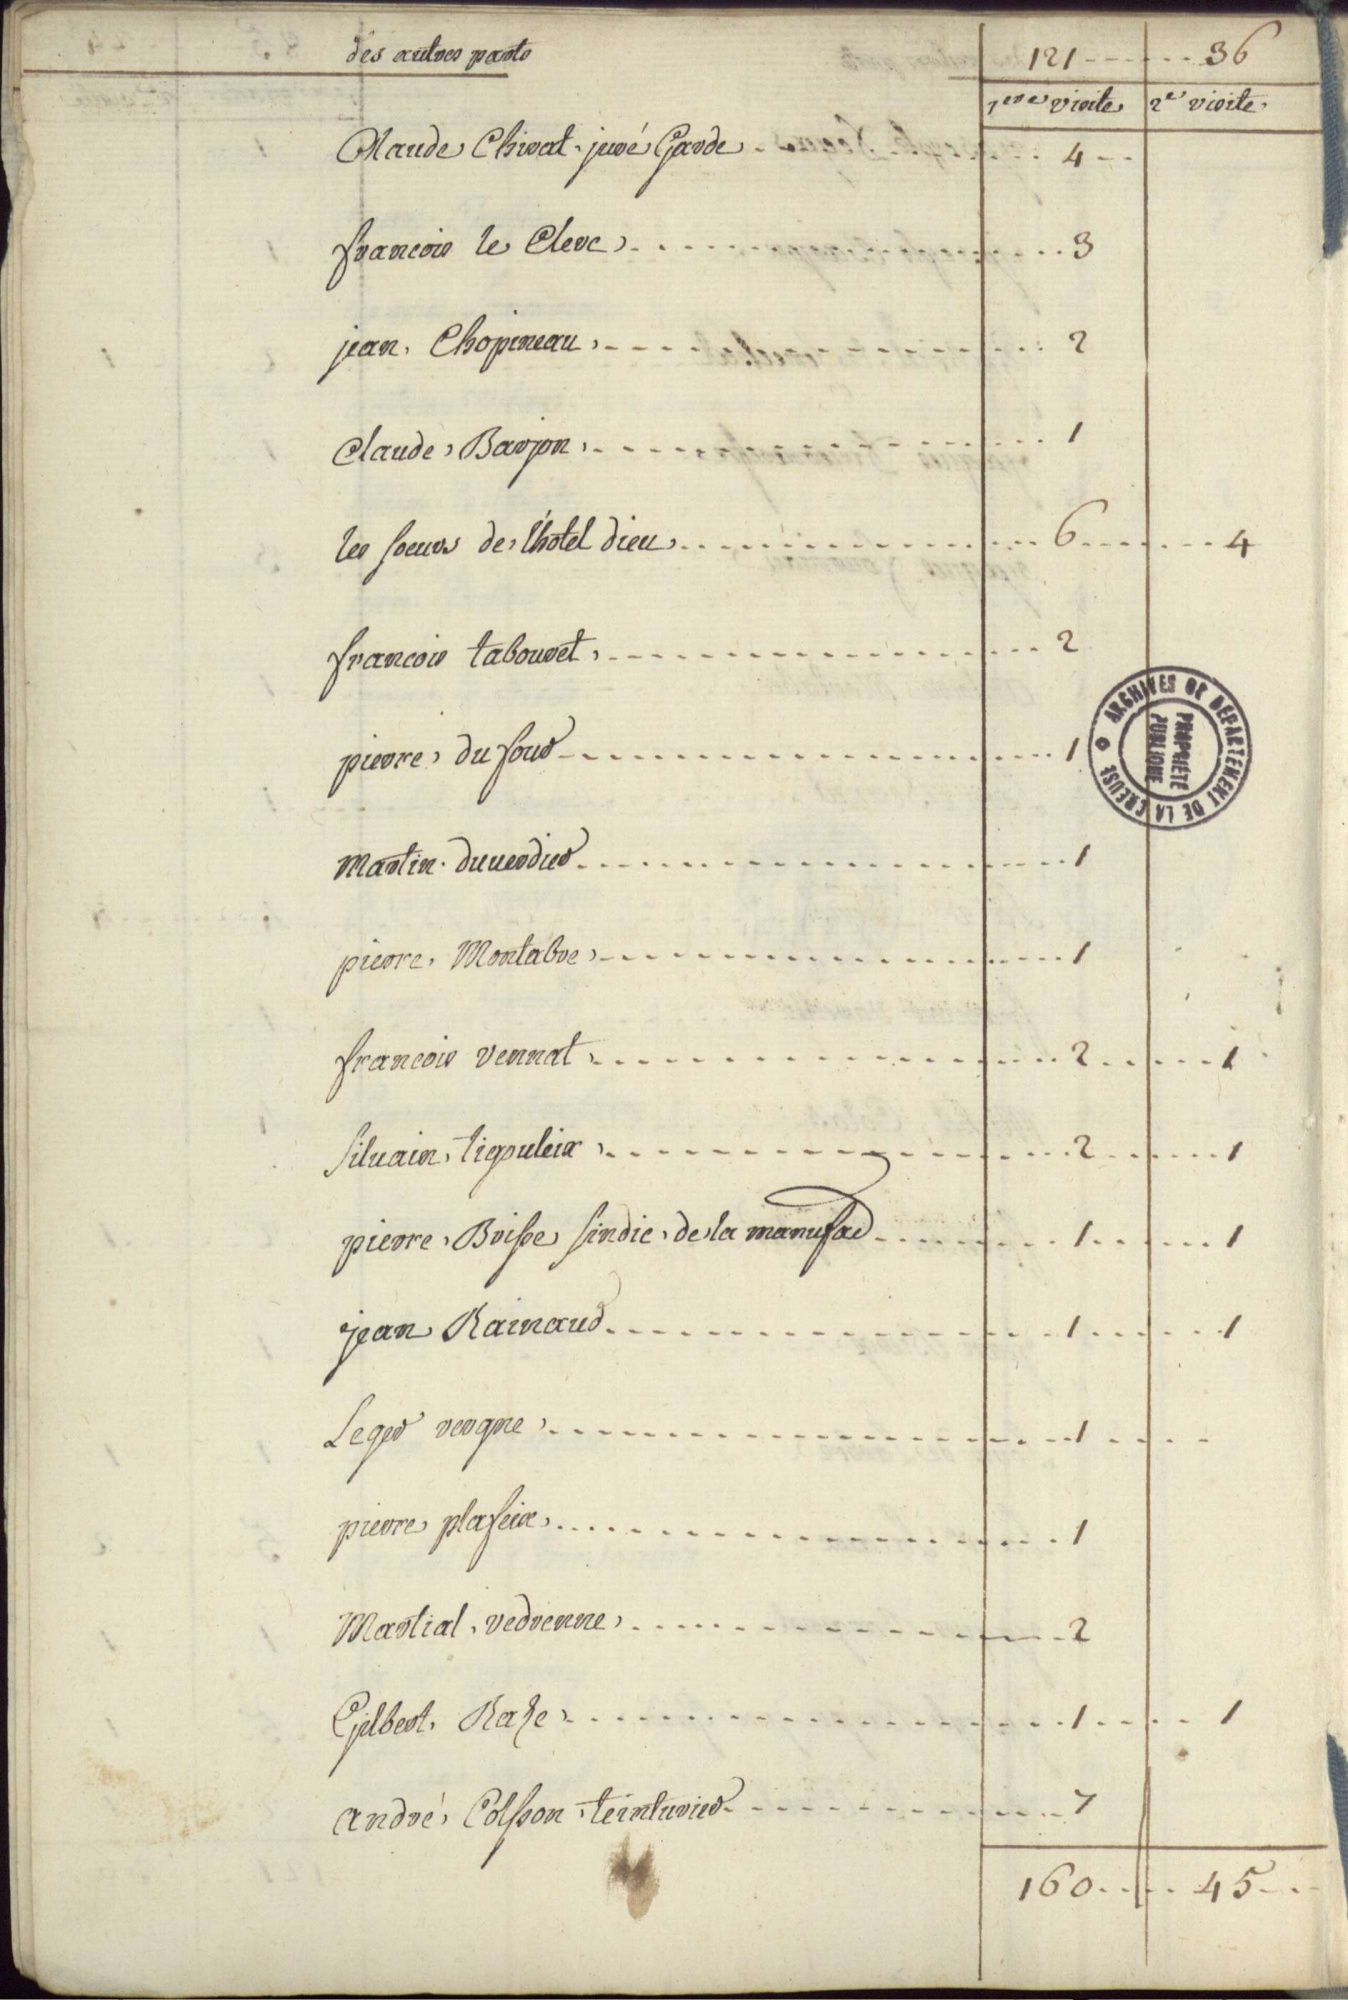 des autres parts 121 36
1ere visite 2e visite
Claude Chirat juré Garde 4
francois le Clerc 3
jean Chopineau 2
Claude Barjon 1
les soeurs de l'hotel dieu 6 4
francois tabouret 2
pierre du four 1
martin duverdier 1
pierre Montabre 1
francois vennat 2 1
silvain tigouleix 2 1
pierre Brisse sindic de la manufac 1 1
jean Rainaud 1 1
Leger vergne 1
pierre plaseix 1
Martial vedrenne 2
Gilbert Raze 1 1
andré Colsson teinturier 7
160 45
ARCHIVES DE DEPARTEMENT DE LA CREUSE
PROPRIÉTÉ
PUBLIQUE